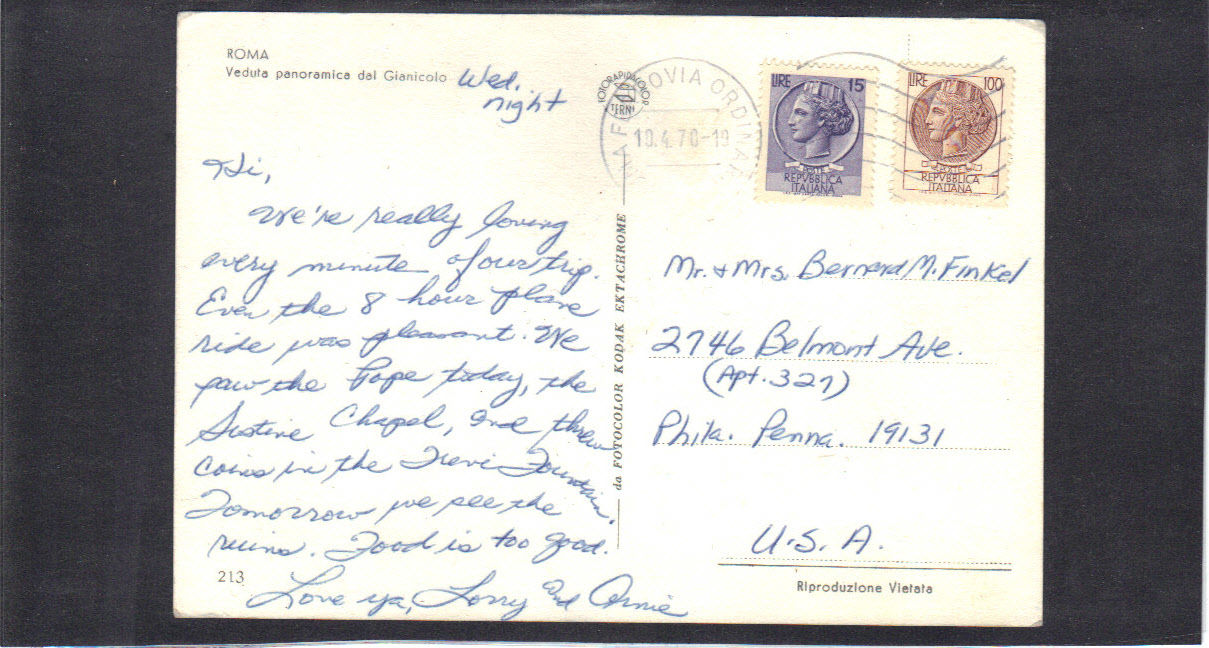 ROMA
Veduta panoramica dal Gianicolo
Wed.
night
Hi,
We're really loving
every minute of our trip.
Even the 8 hour plane
ride was pleasant. We
saw the Pope today, the
Sistine Chapel, and threw
coins in the Trevi Fountain.
Tomorrow we see the
ruins. Food is too good.
Love ya, Lorry and Arnie
213
da FOTOCOLOR KODAK EKTACHROME
FOTORAPIDACOLOR
TERNI
FERROVIA ORDINARIA
LIRE 15
POSTE
REPVBBLICA
ITALIANA
LIRE 100
POSTE
REPVBBLICA
ITALIANA
Mr. & Mrs. Bernard M. Finkel
2746 Belmont Ave.
(Apt. 327)
Phila. Penna. 19131
U.S.A.
Riproduzione Vietata